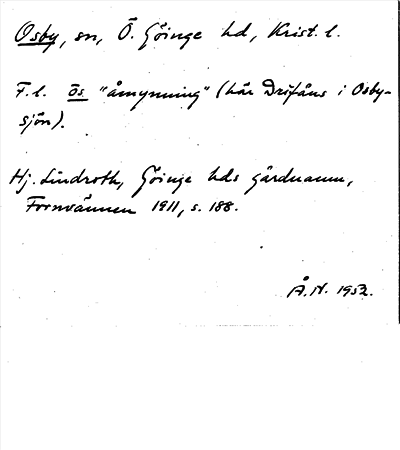 Osby, sn, Ö. Göinge hd, Krist. l.
F.l. ös "åmynning" (här Drifåns i Osby-
sjön).
Hj. Lindroth, Göinge hds gårdnamn,
Fornvännen 1911, s. 188.
Å.N. 1952.